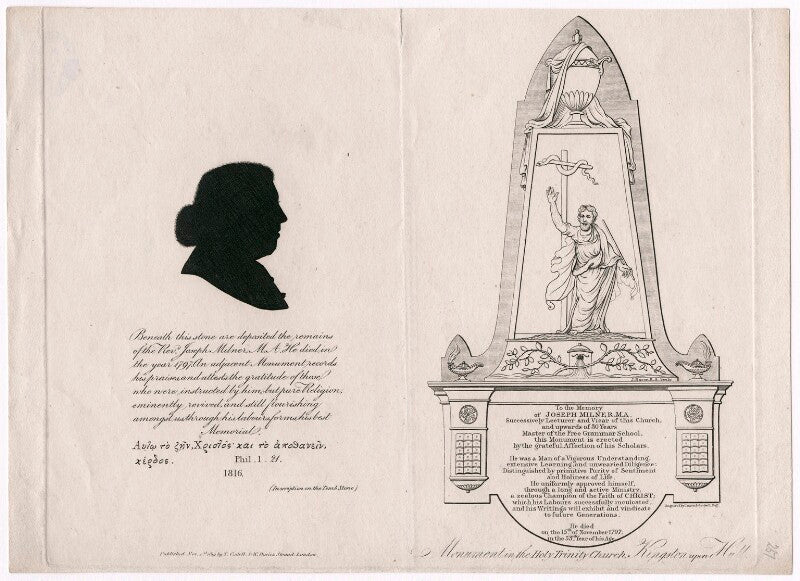 Beneath this stone are deposited the remains
of the Revd. Joseph Milner, M.A. He died in
the year 1797. An adjacent Monument records
his praises and attests the gratitude of those
who were instructed by him, but pure Religion,
eminently revived, and still flourishing
amongst us through his labours forms his best
Memorial.
Αυτω το ζην, Χριστος· και το αποθανειν,
κερδος. Phil. 1. 21.
1816.
(Inscription on the Tomb Stone)
Published Nov.
by T. Cadell & W. Davies, Strand, London.
To the Memory
of JOSEPH MILNER, M.A.
Successively Lecturer and Vicar of this Church,
and upwards of 30 Years
Master of the Free Grammar School,
this Monument is erected
by the grateful Affection of his Scholars.
He was a Man of a Vigorous Understanding,
extensive Learning, and unwearied Diligence:
Distinguished by primitive Purity of Sentiment
and Holiness of Life.
He uniformly approved himself,
through a long and active Ministry,
a zealous Champion of the Faith of CHRIST;
which his Labours successfully inculcated,
and his Writings will exhibit and vindicate
to future Generations.
He died
on the 15th of November 1797,
in the 53rd Year of his Age.
Monument in the Holy Trinity Church, Kingston upon Hull